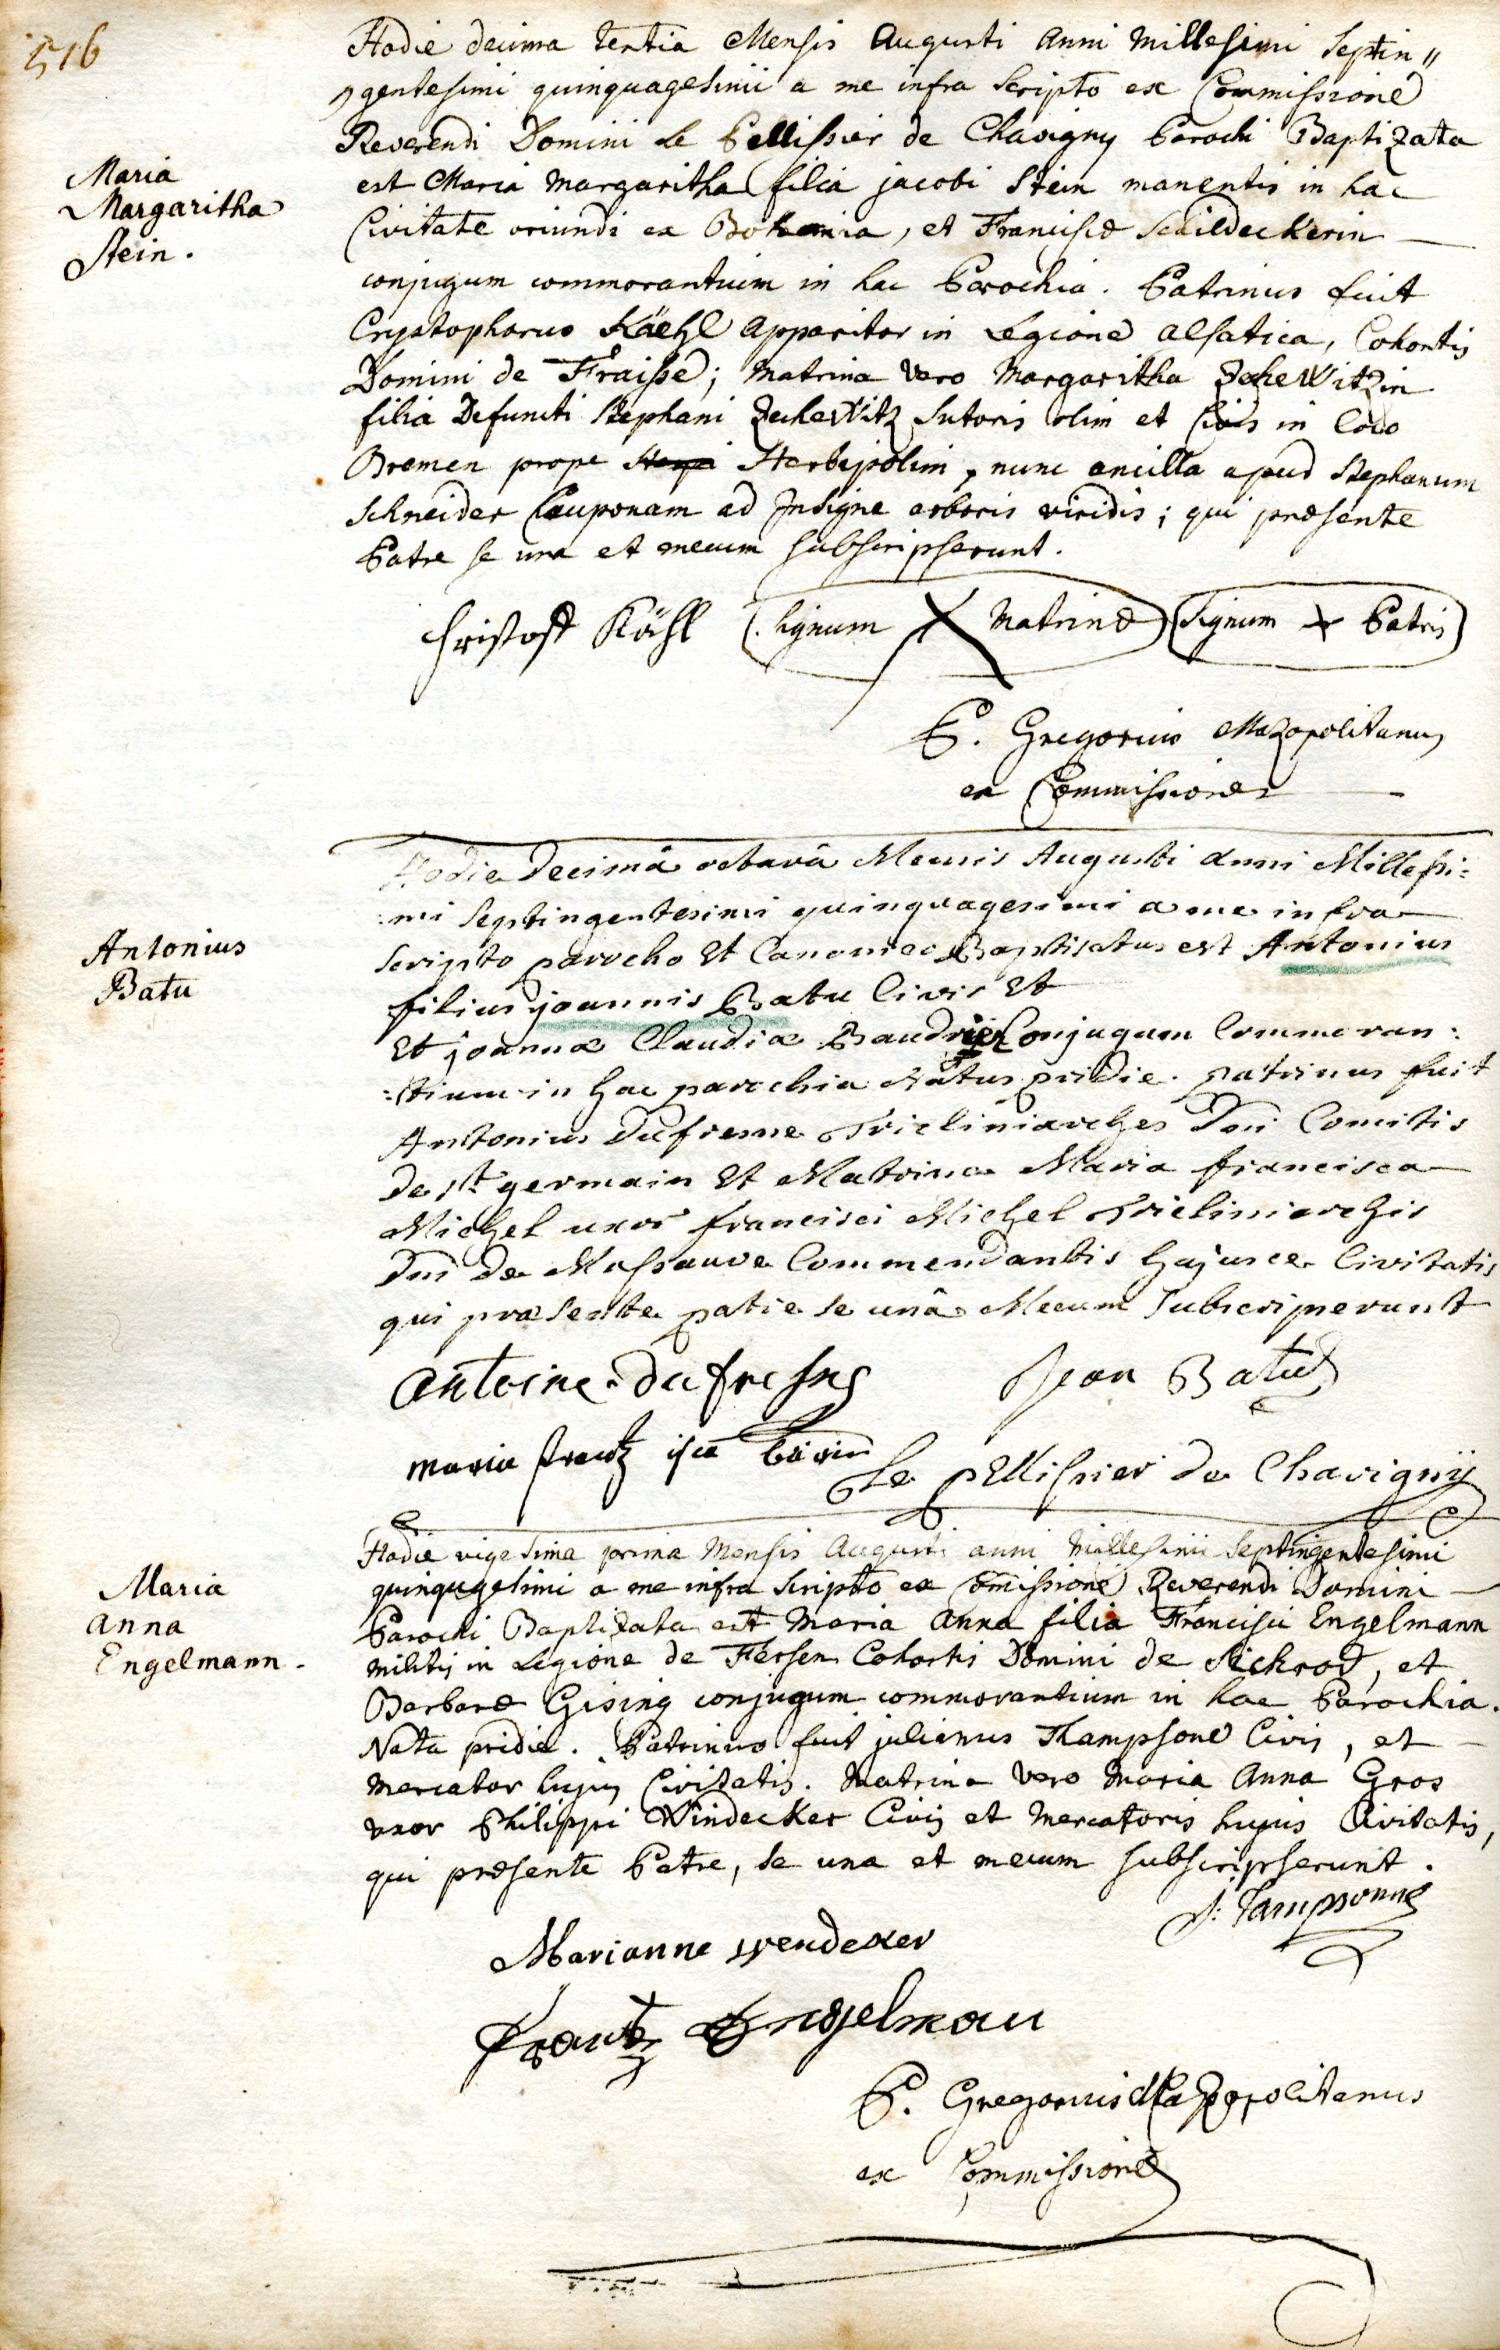 516
Maria
Margaritha
Stein.
Hodie decima tertia Mensis Augusti Anni Millesimi Septin„
„gentesimi quinquagesimi a me infra scripto ex Commissione
Reverendi Domini Le Pellissier de Chavigny Parochi Baptizata
est Maria Margaritha filia jacobi Stein manentis in hac
Civitate oriundi ex Bohemia, et Franciscæ Schildeckerin
conjugum commorantium in hac Parochia. Patrinus fuit
Crystophorus Käehl Apparitor in Legione Alsatica, Cohortis
Domini de Fraisse; Matrina vero Margaritha Zechewitzin
filia Defuncti Stephani Zechewitz Sutoris olim et Civis in loco
Bremen prope Herbipolim, nunc ancilla apud Stephanum
Schneider Cauponam ad Insigne arboris viridis; qui præsente
Patre se una et mecum subscripserunt.
Christoff Köhl (Signum X Matrinæ) (Signum x Patris)
P. Gregorius Mazopolitanus
ex Commissione
Antonius
Batu
Hodie Decimâ octavâ Mensis Augusti anni Millessi:
:mi Septingentesimi quinquagesimi a me infra
scripto parocho Et Canonico Baptisatus est Antonius
filius joannis Batu Civis Et
Et joannæ Claudiæ Baudrier Conjugum Commoran:
:tium in hac parochia Natus pridie. patrinus fuit
Antonius Dufresne Tricliniarches Dni Comitis
de st germain Et Matrina Maria francisca
Michel uxor francisci Michel Tricliniarchis
Dni de Massauve Commendantis hujusce Civitatis
qui præsente patre se unâ Mecum Subscripserunt
antoine dufresne Jean Batu
maria frantz isca
Le pellissier de Chavigny
Maria
Anna
Engelmann.
Hodie vigesima prima Mensis Augusti anni Millesimi Septingentesimi
quinqugesimi a me infra scripto ex Comissione Reverendi Domini
Parochi Baptizata est Maria Anna filia Francisci Engelmann
militis in Legione de Fersen Cohortis Domini de Sickrod, et
Barbaræ Gising conjugum commorantium in hac Parochia.
Nata pridie. Patrinus fuit julianus Thampsone Civis, et
mercator hujus Civitatis. Matrina vero Maria Anna Gros
uxor Philippi Windecker Civis et Mercatoris hujus Civitatis,
qui præsente Patre, se una et mecum subscripserunt.
J: Tampsonne
Marianne wendeker
Frantz Engelman
P. Gregorius Mazopolitanus
ex Commissione